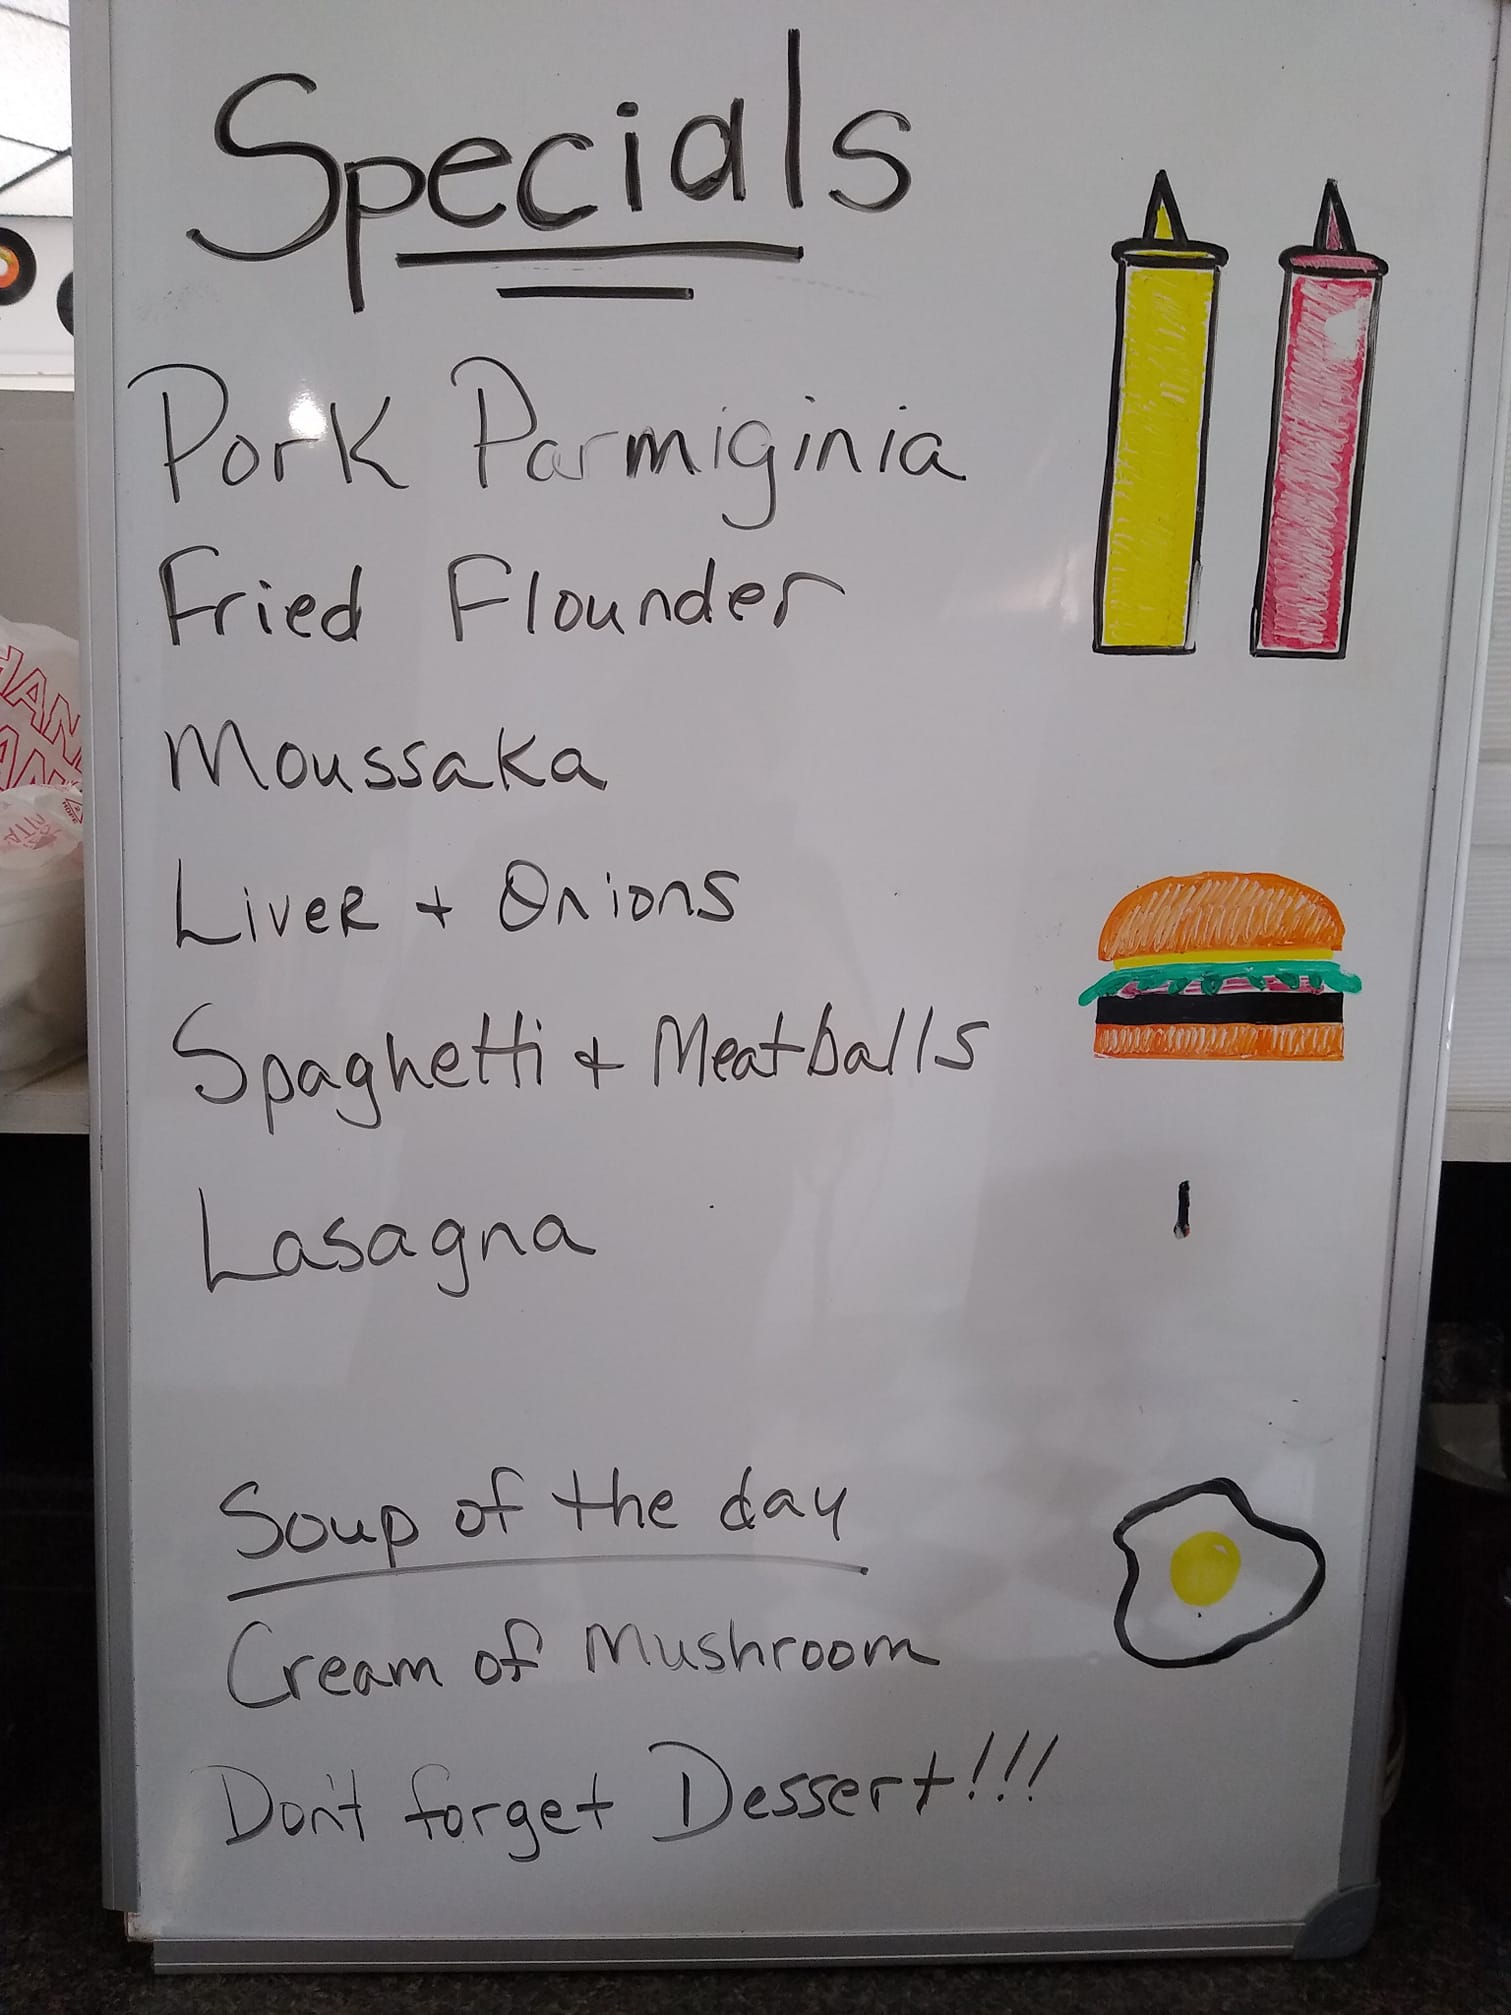 Specials
Pork Parmiginia
Fried Flounder
Moussaka
Liver + Onions
Spaghetti + Meatballs
Lasagna
Soup of the day
Cream of Mushroom
Don't forget Dessert!!!